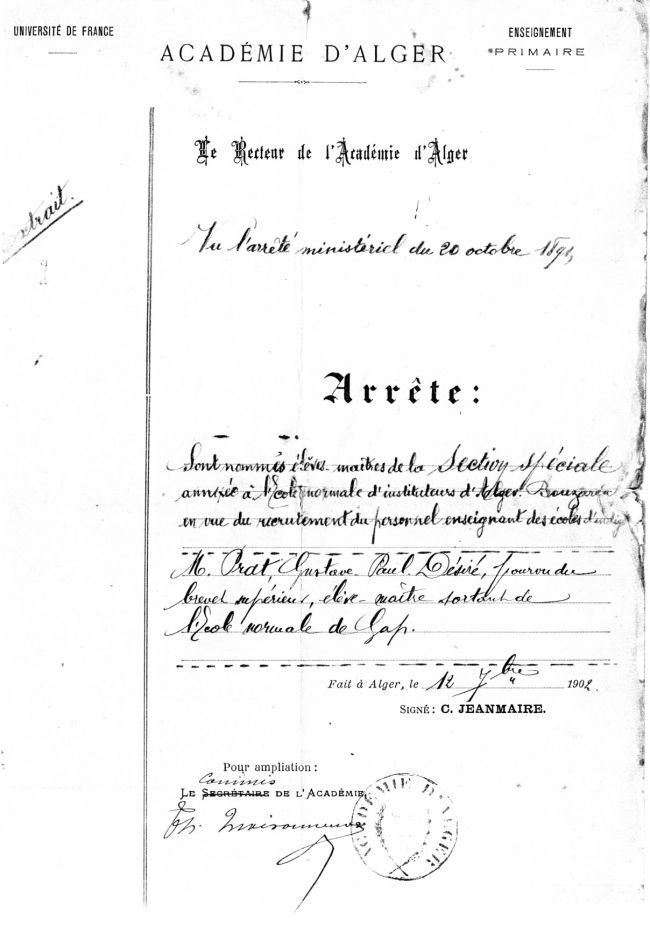 UNIVERSITÉ DE FRANCE
ENSEIGNEMENT
PRIMAIRE
ACADÉMIE D'ALGER
Le Recteur de l'Académie d'Alger
Extrait.
Vu l'arrêté ministériel du 20 octobre 1891,
Arrête:
Sont nommés élèves-maîtres de la Section spéciale
annexée à l'École normale d'instituteurs d'Alger-Bouzaréa
en vue du recrutement du personnel enseignant des écoles
M. Prat, Gustave Paul Désiré, pourvu du
brevet supérieur, élève-maître sortant de
l'École normale de Gap.
Fait à Alger, le 12 7bre 1902.
SIGNÉ: C. JEANMAIRE.
Pour ampliation:
Commis
LE SECRÉTAIRE DE L'ACADÉMIE
Th.
ACADÉMIE D'ALGER